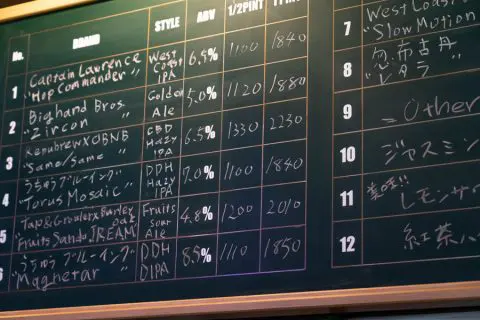 No. BRAND STYLE ABV 1/2PINT
1 Captain Lawrence "Hop Commander" West Coast IPA 6.5% 1100 1840
2 Bighand Bros. "Zircon" Golden Ale 5.0% 1120 1880
3 RepubrewXOBNB "Same/Same" CBD Hazy IPA 6.5% 1330 2230
4 うちゅうブルーイング "Torus Mosaic" DDH Hazy IPA 7.0% 1100 1840
5 Fruits Sandu Fruits Sour Ale 4.8% 1200 2010
うちゅうブルーイング "Magnetar" DDH DIPA 8.5% 1110 1850
7 West Coast "Slow Motion
8 忽布古丹 "レタラ"
9 Other
10 ジャスミン
11 レモンサ
12 紅茶ハ